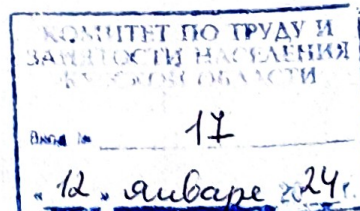 КОМИТЕТ ПО ТРУДУ И
ЗАНЯТОСТИ НАСЕЛЕНИЯ
ОБЛАСТИ
Вход № 17
"12" январе 2024г.